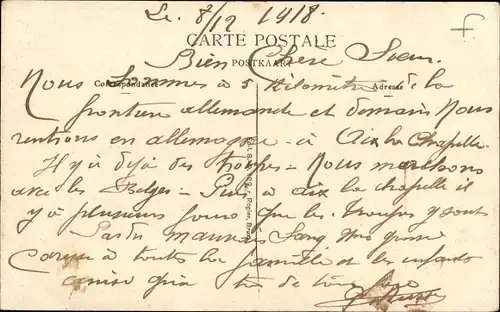 Le. 8/12 1918.
CARTE POSTALE
POSTKAART
Bien Chère Sœur.
Correspondance
Adresse
Nous Sommes à 5 Kilomètre de la
frontière allemande et demain Nous
rentrons en allemagne - à Aix la Chapelle.
Il y a déjà des troupes - Nous marchons
avec les Belges - Puis à aix la chapelle il
y à plusieurs jours que les troupes y sont
Pas du mauvais Sang Mes grosse
Caresse à toute la famille et les enfants
ainsi que